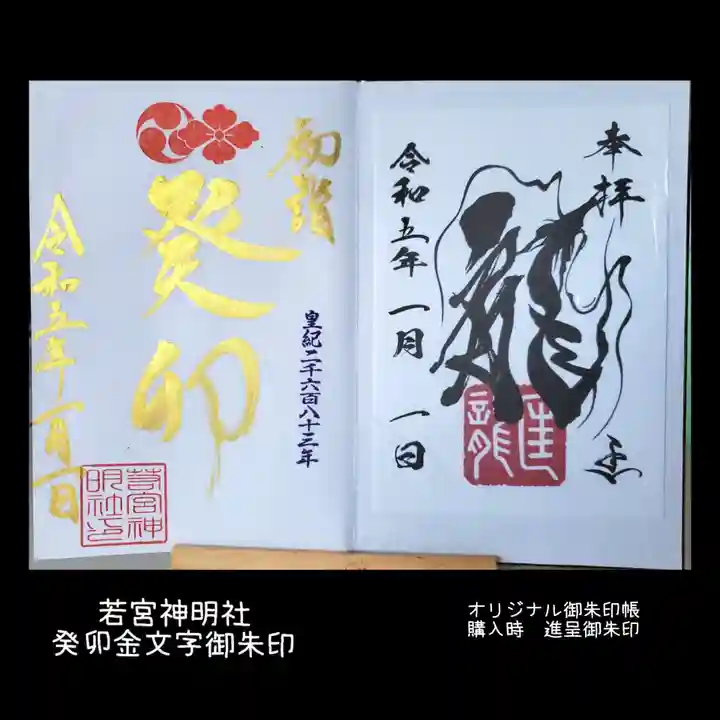 奉拝
龍
令和五年 一月 一日
初詣
癸卯
皇紀二千六百八十三年
令和五年一月一日
若宮神明社
癸卯金文字御朱印
オリジナル御朱印帳
購入時　進呈御朱印